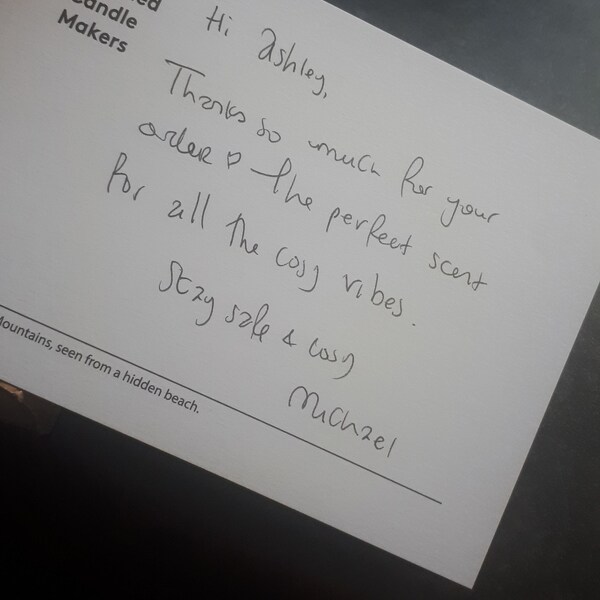 Candle
Makers
Hi Ashley,
Thanks so much for your
order ♡ The perfect scent
for all the cosy vibes.
Stay safe & cosy
Michael
Mountains, seen from a hidden beach.